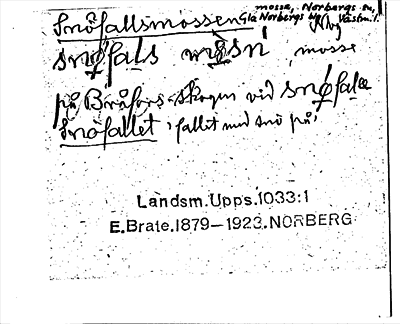 Snöfallsmossen mossa, Norbergs sn,
Gla Norbergs bg, Västm. l.
mosse
på Bråfors-skogen vid
Snöfallet, 'fallet med snö på'
Landsm. Upps. 1033:1
E. Brate. 1879–1923. NORBERG